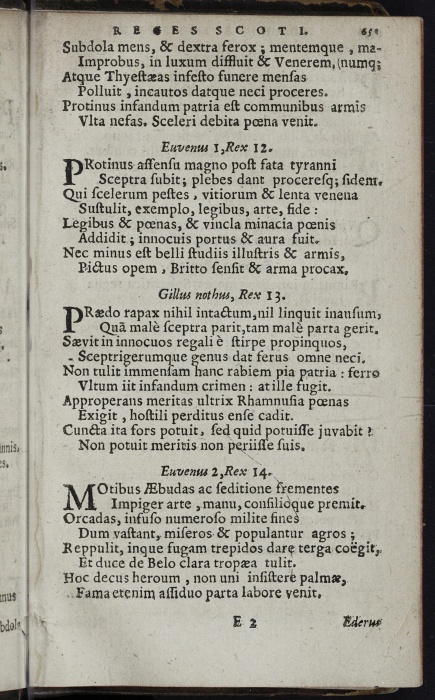 REGES SCOTI.
Subdola mens, & dextra ferox; mentemque, ma-
Improbus, in luxum diffluit & Venerem, (numq;
Atque Thyestæas infesto funere mensas
Polluit, incautos datque neci proceres.
Protinus infandum patria est communibus armis
Vlta nefas. Sceleri debita pœna venit.
Euvenus 1, Rex 12.
PRotinus assensu magno post fata tyranni
Sceptra subit; plebes dant proceresq; fidem.
Qui scelerum pestes, vitiorum & lenta venena
Sustulit, exemplo, legibus, arte, fide:
Legibus & pœnas, & vincla minacia pœnis
Addidit; innocuis portus & aura fuit.
Nec minus est belli studiis illustris & armis,
Pictus opem, Britto sensit & arma procax.
Gillus nothus, Rex 13.
PRædo rapax nihil intactum, nil linquit inausum,
Quâ malè sceptra parit, tam malè parta gerit.
Sævit in innocuos regali è stirpe propinquos,
Sceptrigerumque genus dat ferus omne neci.
Non tulit immensam hanc rabiem pia patria: ferro
Vltum iit infandum crimen: at ille fugit.
Approperans meritas ultrix Rhamnusia pœnas
Exigit, hostili perditus ense cadit.
Cuncta ita fors potuit, sed quid potuisse juvabit?
Non potuit meritis non periisse suis.
Euvenus 2, Rex 14.
MOtibus Æbudas ac seditione frementes
Impiger arte, manu, consilioque premit.
Orcadas, infuso numeroso milite fines
Dum vastant, miseros & populantur agros;
Reppulit, inque fugam trepidos dare terga coëgit,
Et duce de Belo clara tropæa tulit.
Hoc decus heroum, non uni insistere palmæ,
Fama etenim assiduo parta labore venit.
E 2 Ederus
innis,
es.
mus
bdola